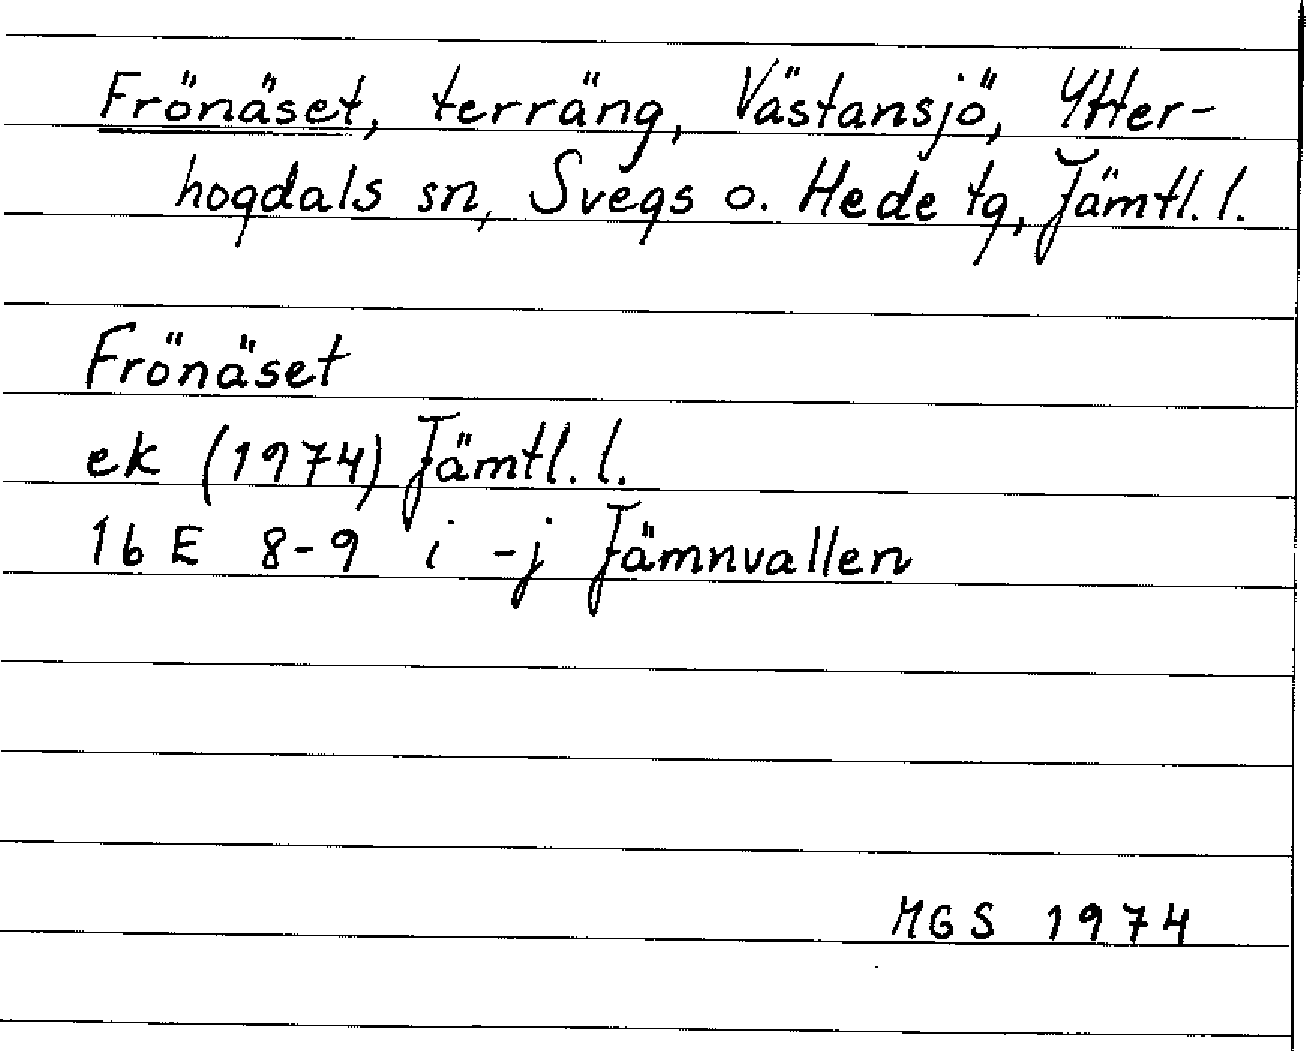 Frönäset, terräng, Västansjö, Ytter-
hogdals sn, Svegs o. Hede tg, Jämtl. l.
Frönäset
ek (1974) Jämtl. l.
16 E 8-9 i -j Jämnvallen
MGS 1974